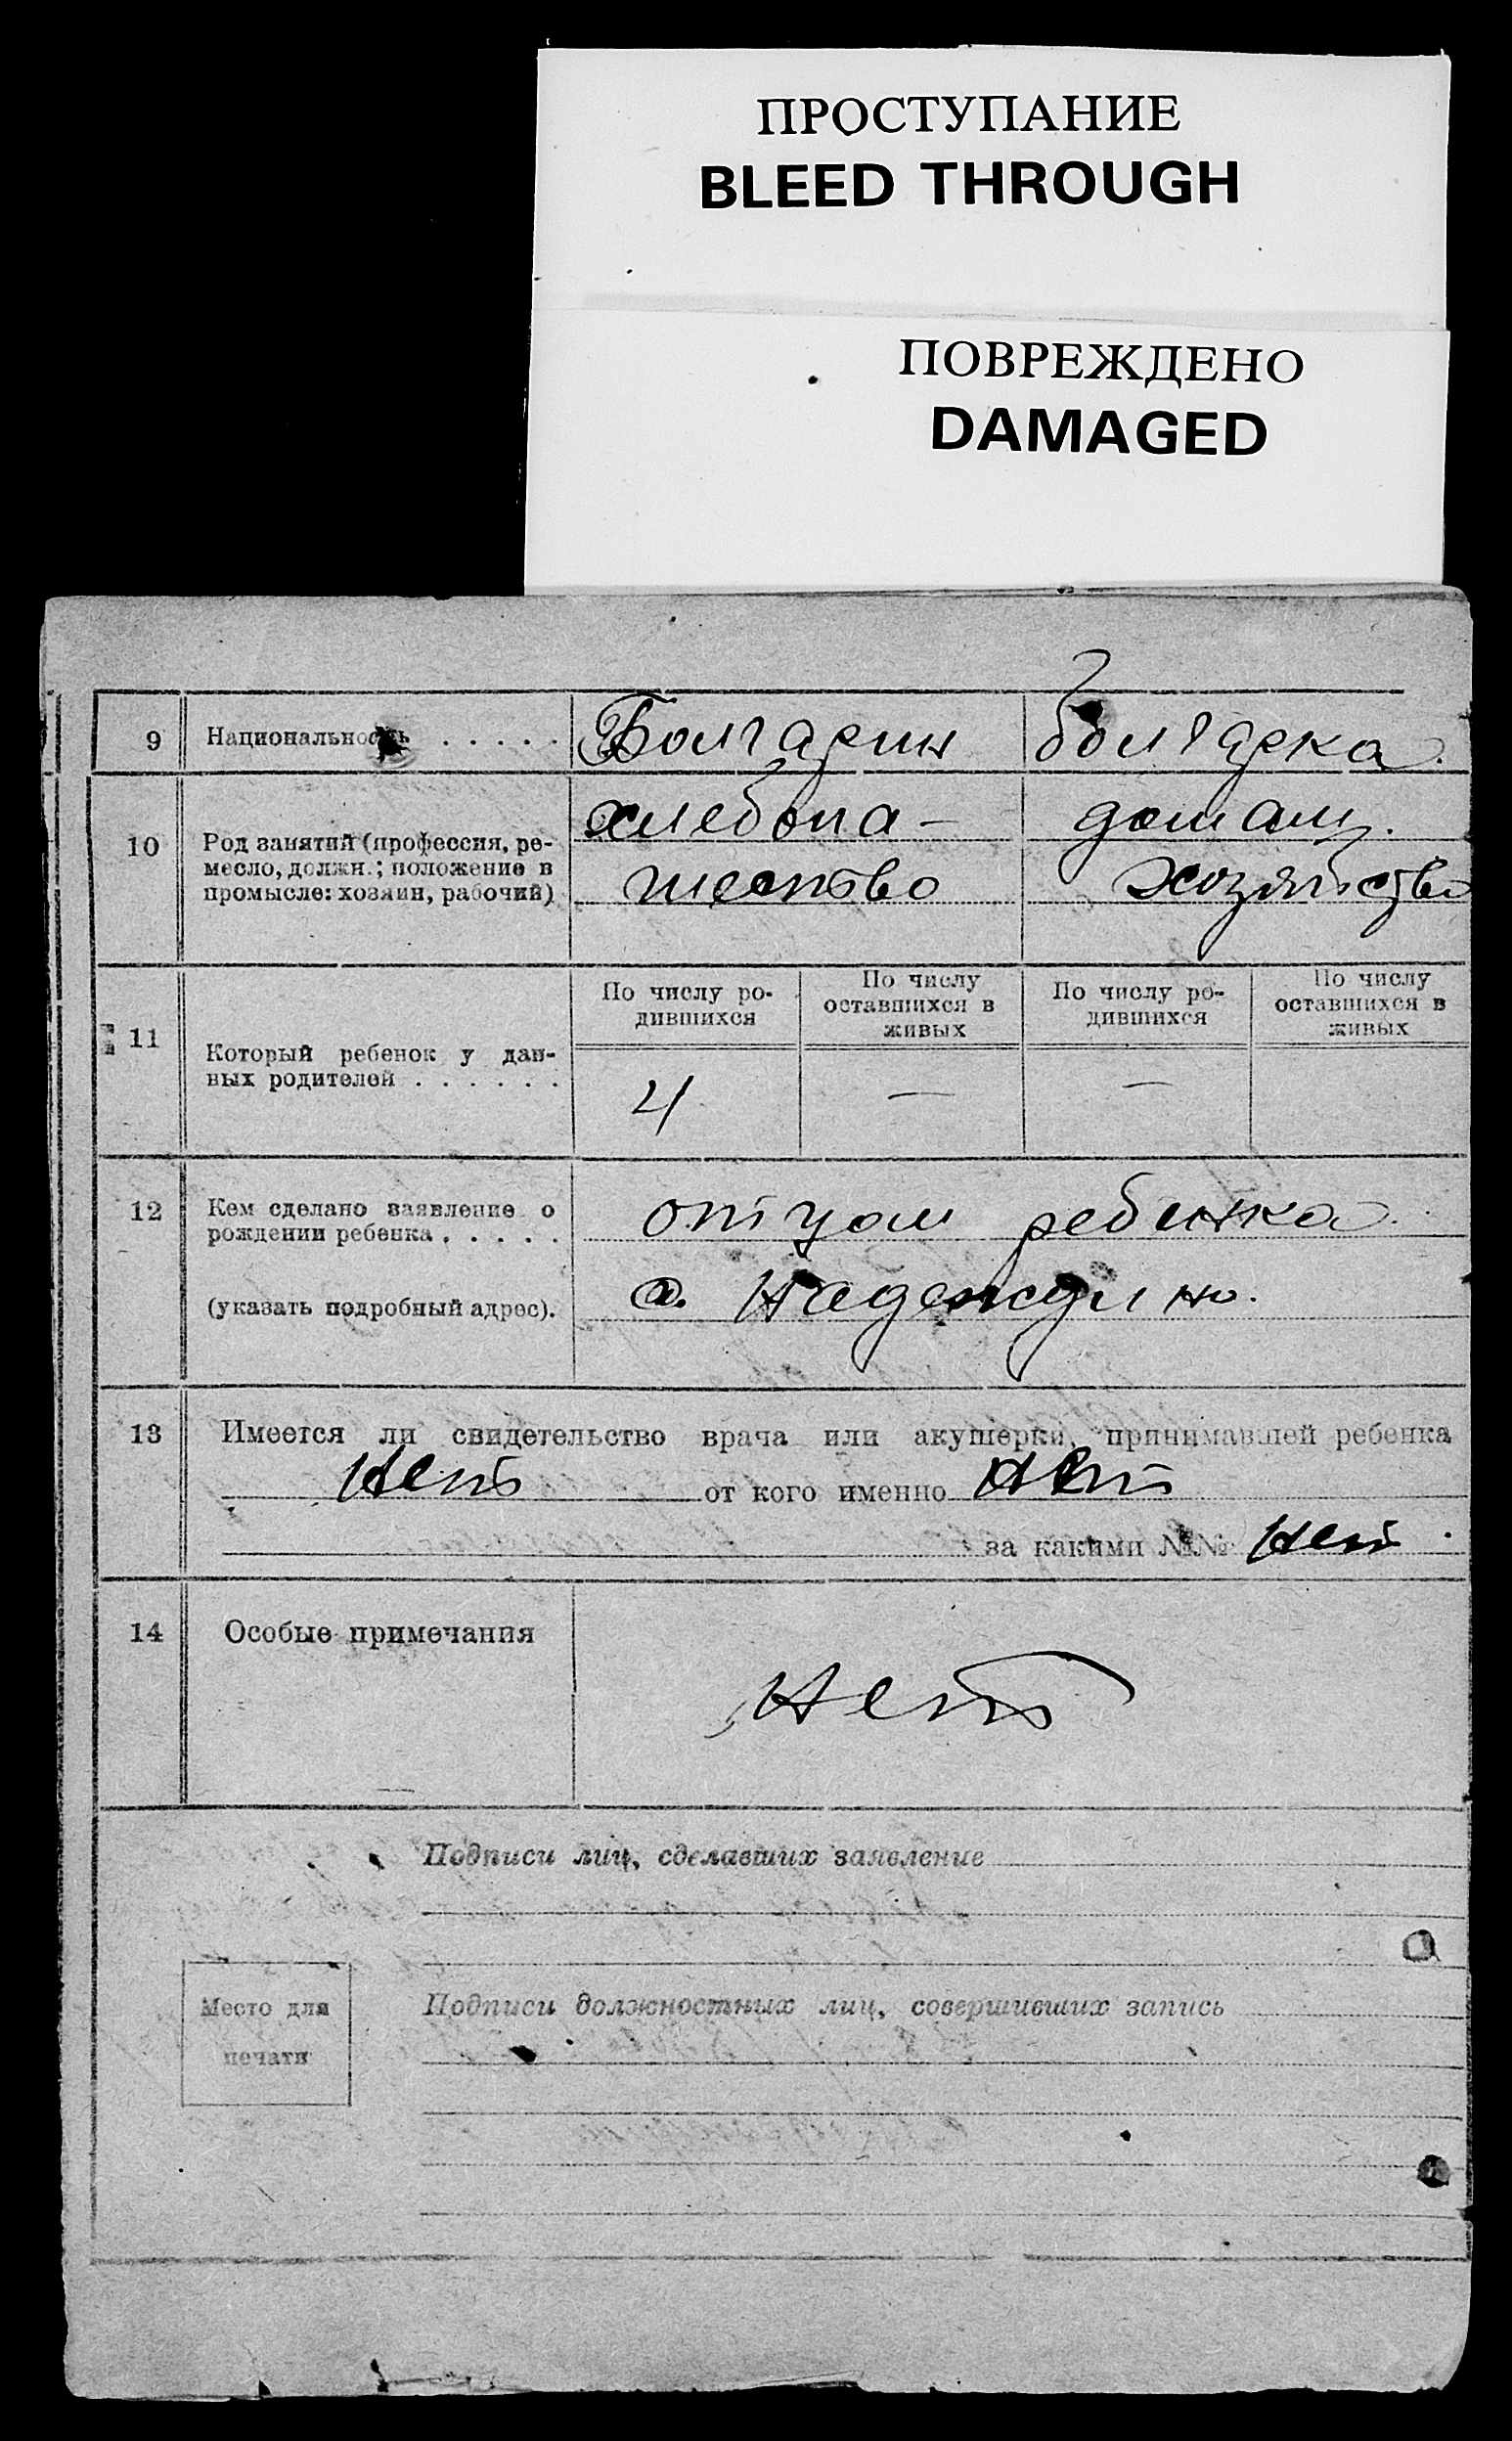 ПРОСТУПАНИЕ
BLEED THROUGH
ПОВРЕЖДЕНО
DAMAGED
9 Национальность . . . . . Болгарин болгарка.
10 Род занятий (профессия, ре-
месло, должн.; положение в
промысле: хозяин, рабочий)
хлебопа- домашн.
шество хозяйство
11 Который ребенок у дан-
ных родителей . . . . . .
По числу ро-
дившихся
По числу
оставшихся в
живых
По числу ро-
дившихся
По числу
оставшихся в
живых
4 — —
12 Кем сделано заявление о
рождении ребенка . . . . .
(указать подробный адрес).
отцом ребенка.
с. Надеждино.
13 Имеется ли свидетельство врача или акушерки, принимавшей ребенка
Нет от кого именно Нет
за какими №№ Нет.
14 Особые примечания
Нет
Подписи лиц, сделавших заявление
Место для
печати
Подписи должностных лиц, совершивших запись